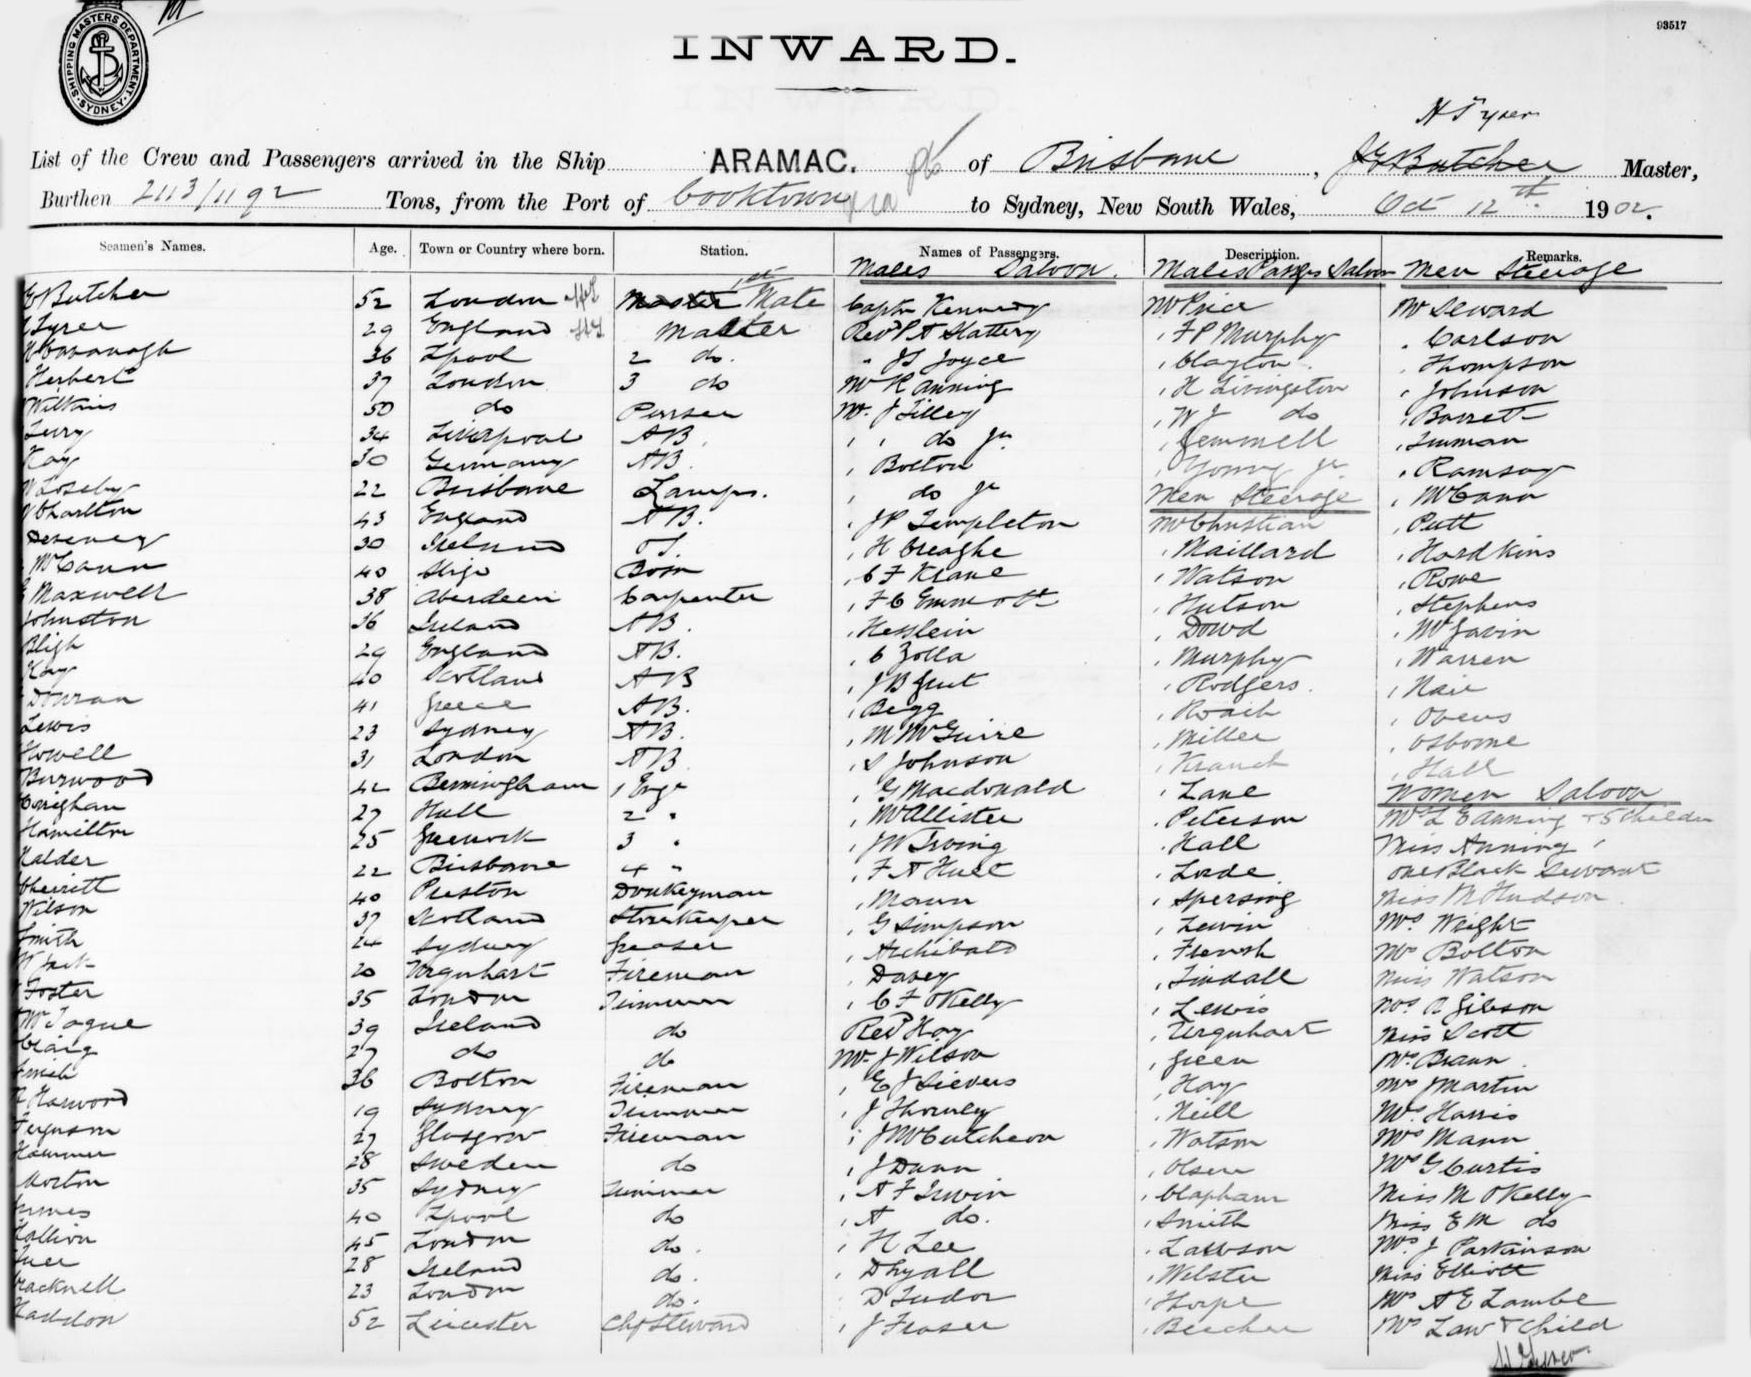 SHIPPING MASTERS DEPARTMENT. SYDNEY
93517
INWARD.
H Tyrer
List of the Crew and Passengers arrived in the Ship ARAMAC. of Brisbane, J G Butcher Master,
Burthen 2113/1192 Tons, from the Port of Cooktown to Sydney, New South Wales, Oct 12th 1902.
Seamen's Names. Age. Town or Country where born. Station. Names of Passengers. Description. Remarks.
Males Saloon. Males Passgs Saloon Men Steerage
Butcher 52 London Master 1st Mate Captn Kennedy Mr Price Mr Seward
Tyrer 29 England Master Revd P A Slattery , F P Murphy , Carlson
Kavanagh 36 Lpool 2 do. " J S Joyce , Clayton , Thompson
Herbert 37 London 3 do Mr R Anning , H Livingston , Johnson
Wilkins 50 do Purser Mr. J Tilley , W J do , Barrett
34 Liverpool AB. , , do Jr. , Gemmell , Inman
Kay 30 Germany AB. , Bolton , Young jr , Ramsay
22 Brisbane Lamps. , do jr Men Steerage , McCann
Charlton 43 England AB. , J P Templeton Mr Christian , Putt
30 Ireland OS. , H Creaghe , Maillard , Hordkins
McCann 40 Sligo Bosn , C F Krane , Watson , Rowe
Maxwell 38 Aberdeen Carpenter , F C Emmott , Hutson , Stephens
Johnston 36 Ireland AB. , Hesslein , Dowd , McGavin
Bligh 29 England AB. , C Zolla , Murphy , Warren
Kay 40 Scotland AB , J B Gent , Rodgers. , Nair
41 Greece AB. , Begg , Roach , Ovens
Lewis 23 Sydney AB. , M McGuire , Miller , Osborne
Howell 31 London AB , S Johnson , Kranch , Hall
Burwood 42 Bermingham 1 Engr , G Macdonald , Lane Women Saloon
Corrighan 27 Hull 2 " , McAllister , Peterson Mrs L E Anning & 5 Childn
Hamilton 25 Greenock 3 " , J W Irving , Hall Miss Anning
Halder 22 Brisbane 4 " , F A Huet , Lade One Black Servant
Cherritt 40 Preston Donkeyman , Mann , Spersing Miss M Hudson
Wilson 37 Scotland Storekeeper , G Simpson , Lewin Mrs. Wright
Smith 24 Sydney Greaser , Archibald , French Mrs Bolton
20 Urquhart Fireman , Davey , Tindall Miss Watson
Foster 35 London Trimmer , C F OKelly , Lewis Mrs A Gibson
McTague 39 Ireland do Revd Hay , Urquhart Miss Scott
Craig 27 do do Mr. J Wilson , Green Mr. Braun
36 Bolton Fireman , E J Sievers , Hay Mrs J Martin
Harwood 19 Sydney Trimmer , J Thornley , Neill Mrs. Harris
Ferguson 27 Glasgow Fireman , J McCutcheon , Watson Mrs Mann
Hammer 28 Sweden do , J Dunn , Olsen Mrs G Curtis
Morton 35 Sydney Trimmer , A F Irwin , Clapham Miss M OKelly
40 Lpool do , A do. , Smith Miss E M do
Hallion 45 London do. , H Lee , Lawson Mrs. J Parkinson
28 Ireland do. , D Lyall , Webster Miss Elliott
Bracknell 23 London do. , D Tudor , Thorpe Mrs A E Lambe
Haddon 52 Leicester Chf Steward , J Fraser , Beecher Mrs Law & Child